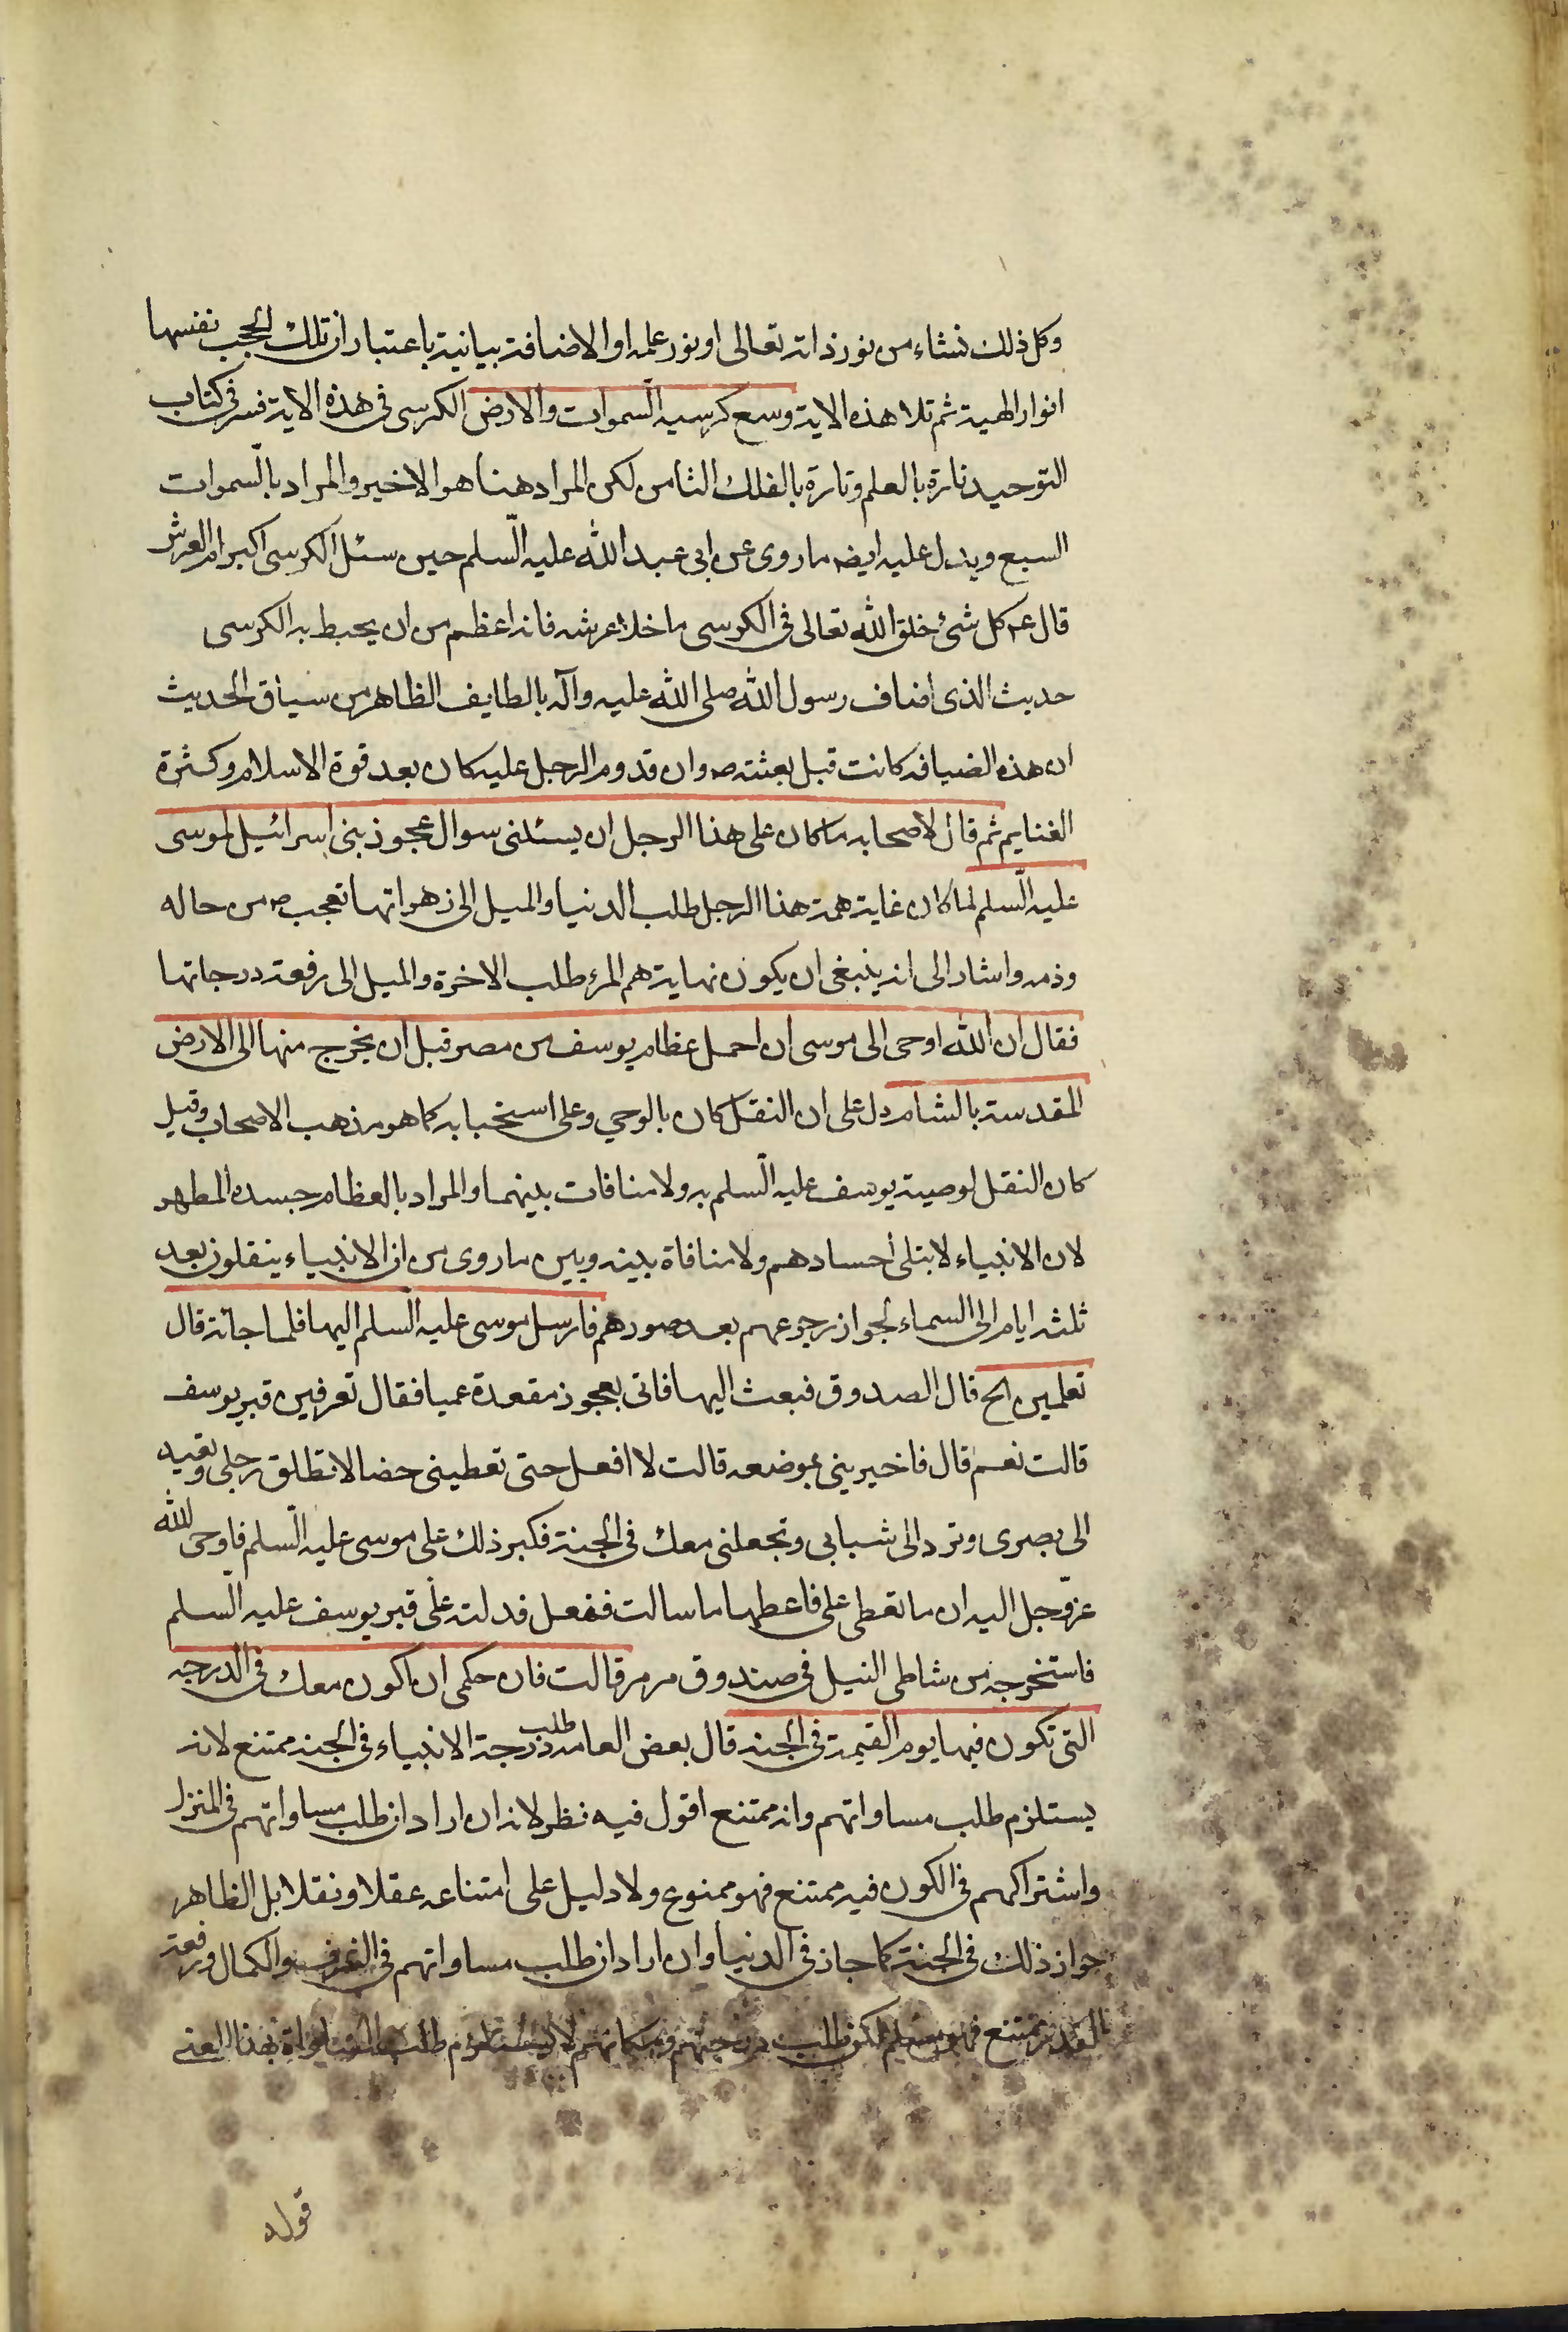 وكل ذلك نشاء من نور ذاته تعالى او نور علمه او الاضافة بيانية باعتبار ان تلك الحجب نفسها
انوار الهية ثم تلا هذه الاية وسع كرسيه السموات والارض الكرسى فى هذه الاية فسر فى كتاب
التوحيد تارة بالعلم وتارة بالفلك الثامن لكن المراد هنا هو الاخير والمراد بالسموات
السبع ويدل عليه ايضه ما روى عن ابى عبد الله عليه السلم حين سئل الكرسى اكبر ام العرش
قال عم كل شئ خلق الله تعالى فى الكرسى ما خلا عرشه فانه اعظم من ان يحيط به الكرسى
حديث الذى اضاف رسول الله صلى الله عليه وآله بالطايف الظاهر من سياق الحديث
ان هذه الضيافه كانت قبل بعثته ص وان قدوم الرجل عليه كان بعد قوة الاسلام وكثرة
الغنايم ثم قال لاصحابه ما كان على هذا الرجل ان يسئلنى سوال عجوز بنى اسرائيل لموسى
عليه السلم لما كان غاية همة هذا الرجل طلب الدنيا والميل الى زهراتها تعجب ص من حاله
وذمه واشار الى انه ينبغى ان يكون نهاية هم المرء طلب الاخرة والميل الى رفعة درجاتها
فقال ان الله اوحى الى موسى ان احمل عظام يوسف من مصر قبل ان يخرج منها الى الارض
المقدسة بالشام دل على ان النقل كان بالوحي وعلى استحبابه كما هو مذهب الاصحاب وقيل
كان النقل لوصية يوسف عليه السلم به ولا منافات بينهما والمراد بالعظام جسده المطهر
لان الانبياء لا يبلى اجسادهم ولا منافاة بينه وبين ما روى من ان الانبياء ينقلون بعد
ثلثه ايام الى السماء لجواز رجوعهم بعد صورهم فارسل موسى عليه السلم اليها فلما جائته قال
تعلمين الخ قال الصدوق فبعث اليها فاتى بعجوز مقعدة عميا فقال تعرفين قبر يوسف
قالت نعم قال فاخبرينى بموضعه قالت لا افعل حتى تعطينى خصالا تطلق رجلى وتعيد
الى بصرى وترد الى شبابى وتجعلنى معك فى الجنة فكبر ذلك على موسى عليه السلم فاوحى الله
عز وجل اليه ان ما تعطى على فاعطها ما سالت ففعل فدلته على قبر يوسف عليه السلم
فاستخرجه من شاطى النيل فى صندوق مرمر قالت فان حكمى ان اكون معك فى الدرجه
التى تكون فيها يوم القيمة فى الجنه قال بعض العامه طلب درجة الانبياء فى الجنه ممتنع لانه
يستلزم طلب مساواتهم وانه ممتنع اقول فيه نظر لانه ان اراد ان طلب مساواتهم فى المنزل
واشتراكهم فى الكون فيه ممتنع فهو ممنوع ولا دليل على امتناعه عقلا ونقلا بل الظاهر
جواز ذلك فى الجنة كما جاز فى الدنيا وان اراد ان طلب مساواتهم فى الشرف والكمال ورفعة
القدر ممتنع فهو مسلم لكن طلب درجتهم ومكانهم لا يستلزم طلب المساواة بهذا المعنى
قوله